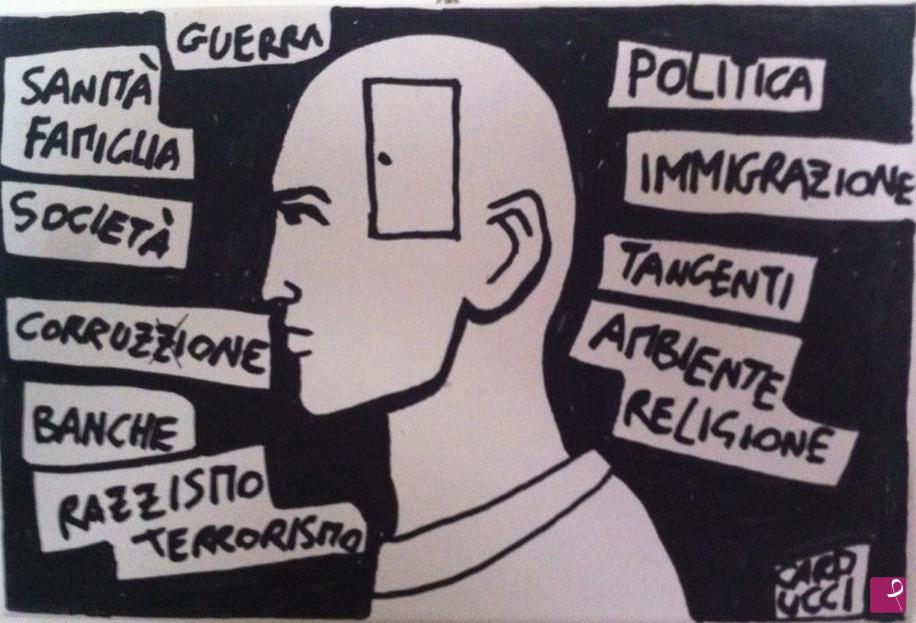 GUERRA
SANITÀ
FAMIGLIA
SOCIETÀ
CORRUZZIONE
BANCHE
RAZZISMO
TERRORISMO
POLITICA
IMMIGRAZIONE
TANGENTI
AMBIENTE
RELIGIONE
CARD
UCCI